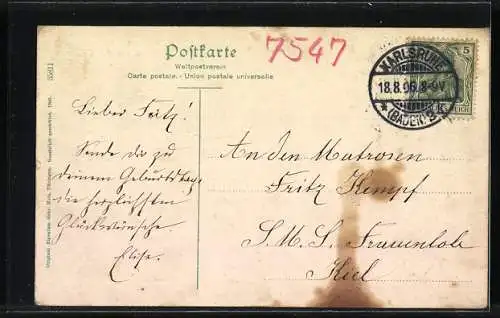 Postkarte
Weltpostverein
Carte postale - Union postale universelle
7547
KARLSRUHE
18.8.06. 8-9V
* (BADEN) 2
5
Lieber Fritz!
Sende dir zu
deinem Geburtstag
die herzlichsten
Glückwünsche.
Elise.
An den Matrosen
Fritz Kempf
S. M. S. Frauenlob
Kiel